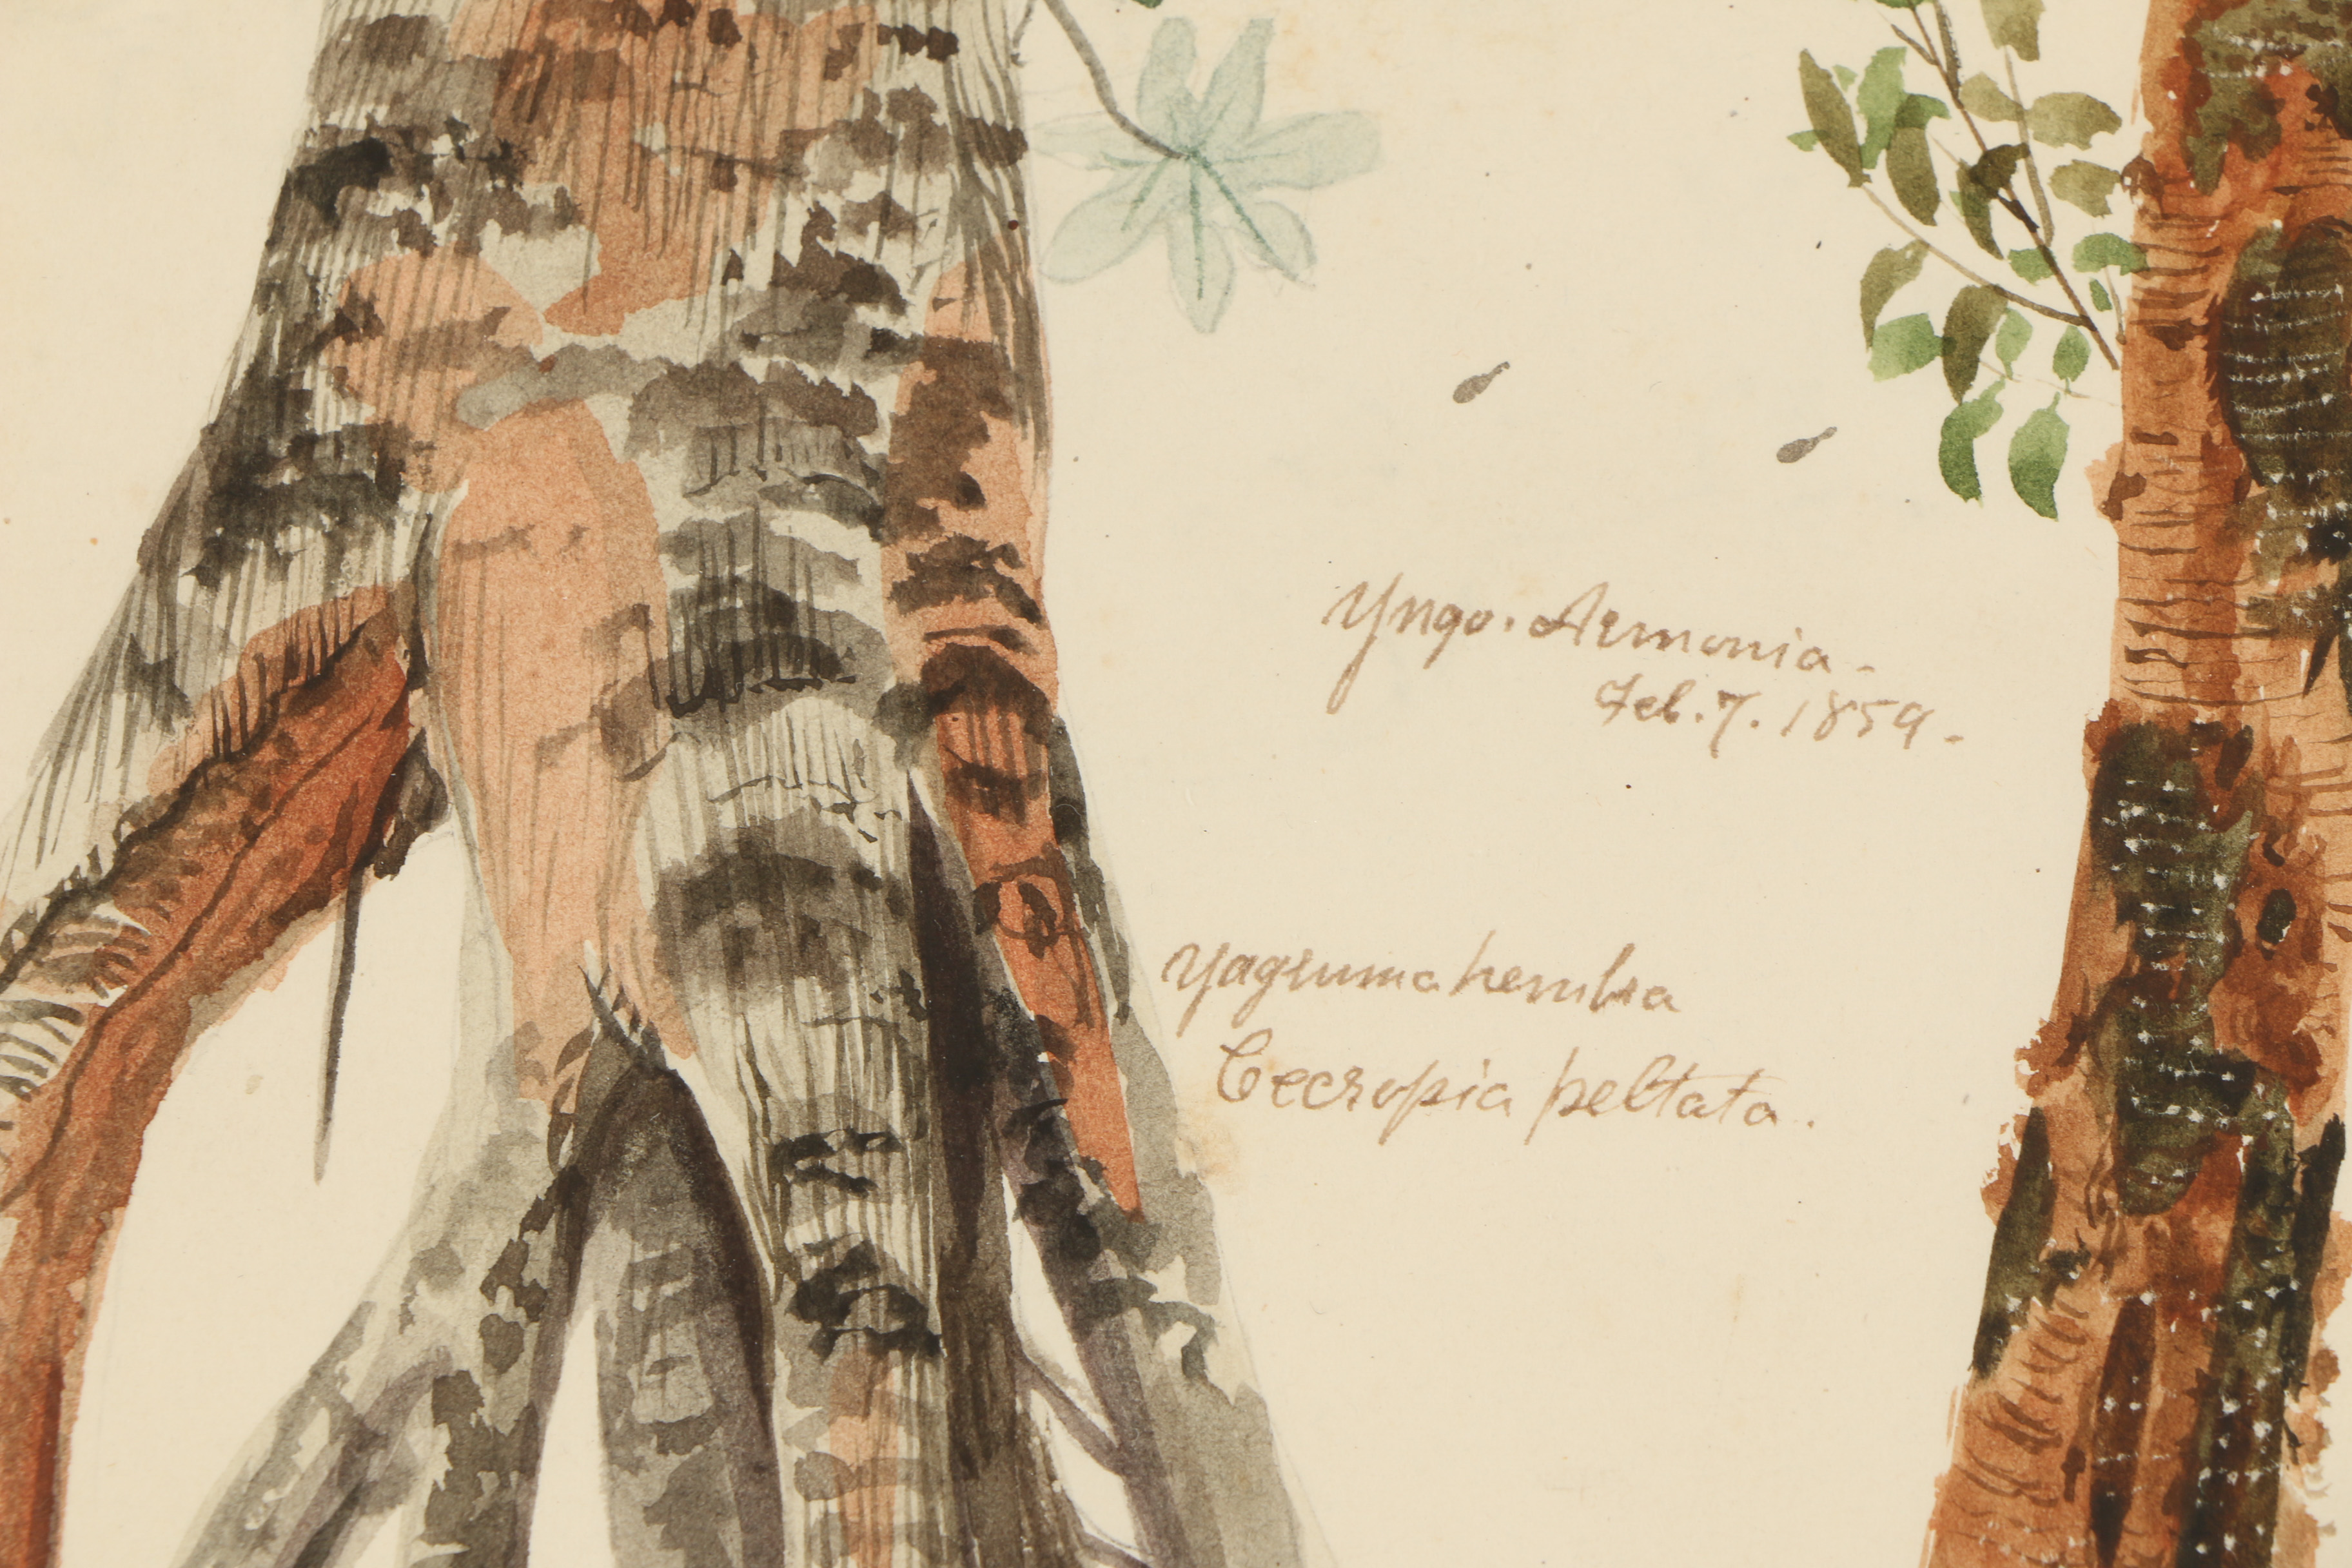 Yngo. Armonia -
Feb. 7. 1859 -
Yagruma hembra
Cecropia peltata.